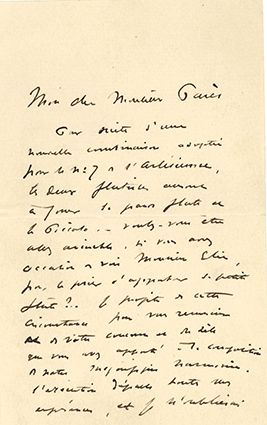 Mon cher Monsieur Parès
Par suite d'une
nouvelle combinaison adoptée
pour le nº 7 de l'Arlésienne,
les deux flûtistes auront
à jouer la grande flûte et
le Piccolo — voulez-vous être
assez aimable, si vous avez
occasion de voir Monsieur Elie,
pour le prier d'apporter sa petite
flûte ? Je profite de cette
circonstance pour vous remercier
de votre concours et du zèle
que vous avez apporté à la composition
de notre harmonie.
L'exécution dépasse toutes mes
espérances, et je n'oublierai